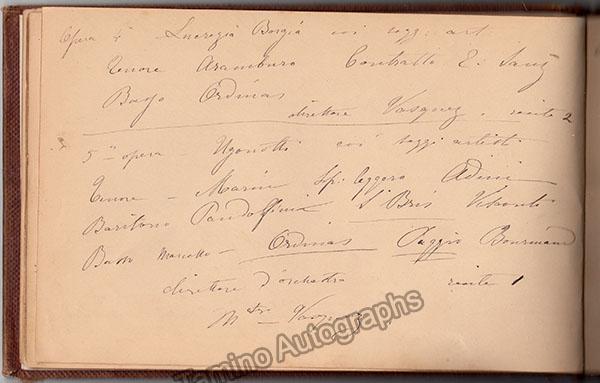 Opera 4ª Lucrezia Borgia coi segg: art.
Tenore Aramburo Contralto E: Sanz
Basso Ordinas
direttore Vasquez. recite 2
5ª opera – Ugonotti coi seggi artisti
Tenore – Marin Sp: leggero Adini
Baritono Pandolfini St Bris Visconti
Basso Marcello – Ordinas Paggio Bourman
direttore d'orchestra recite 1
Mtro Vasquez
Tamino Autographs